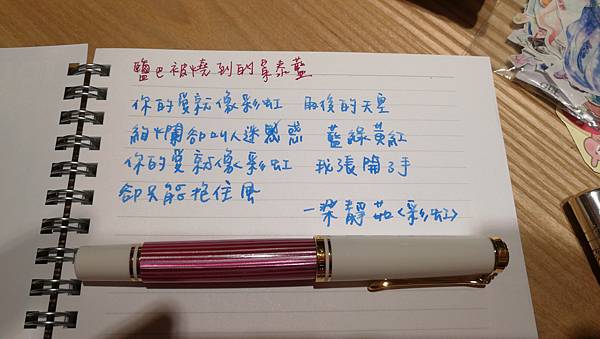 鹽巴被燒到的景泰藍
你的愛就像彩虹 雨後的天空
絢爛卻叫人迷惑惑 藍綠黃紅
你的愛就像彩虹 我張開了手
卻只能抱住風
—梁靜茹<彩虹>